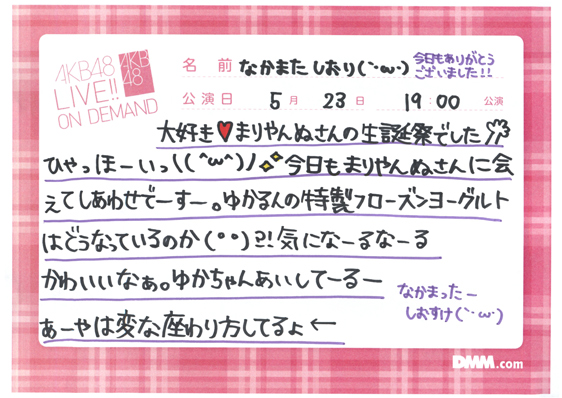 AKB48
LIVE!!
ON DEMAND
AKB
48
名前 なかまたしおり(｀･ω･)
今日もありがとう
ございました!!
公演日 5月 23日 19:00 公演
大好き♥まりやんぬさんの生誕祭でした
ひゃっほーいっ\(^ω^)/今日もまりやんぬさんに会
えてしあわせでーすー。ゆかるんの特製フローズンヨーグルト
はどうなっているのか(°°)?!気になーるなーる
かわいいなぁ。ゆかちゃんあいしてーるー
なかまったー
しおすけ(｀･ω･)
あーやは変な座わり方してるょ←
DMM.com